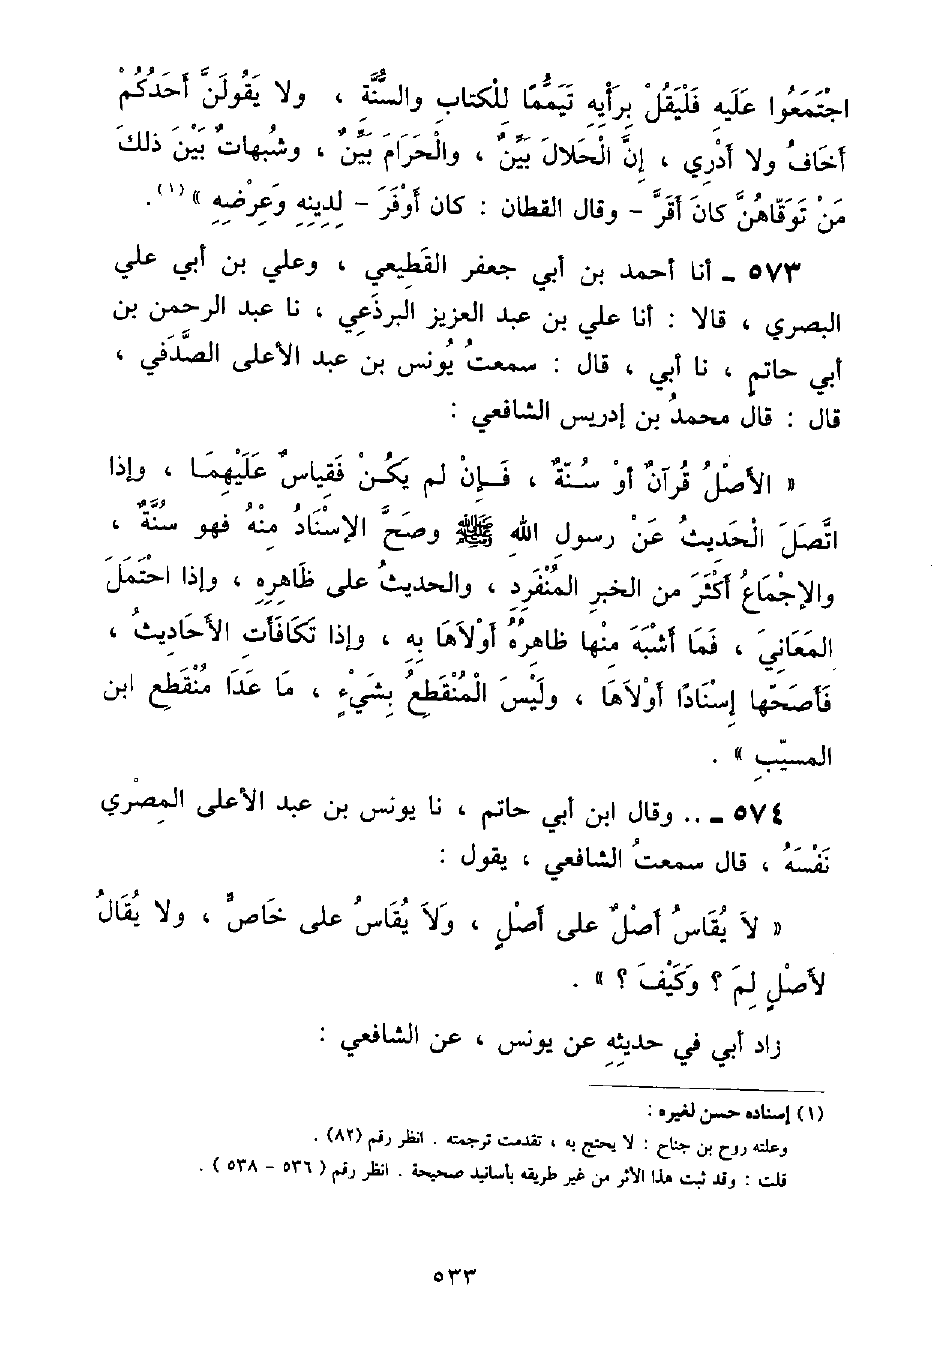 اجْتَمَعُوا عَلَيهِ فَلْيَقُلْ بِرَأْيِهِ تَيَمُّمًا لِلْكتابِ والسُّنَّةِ ، ولا يَقُولَنَّ أَحَدُكُمْ
أخافُ ولا أدْرِي ، إنَّ الْحَلالَ بَيِّنٌ ، والْحَرَامَ بَيِّنٌ ، وشُبهاتٌ بَيْنَ ذلكَ
مَنْ تَوَقَّاهُنَّ كانَ أقَرَّ – وقال القطان : كان أوْفَرَ – لدِينِهِ وَعِرْضِهِ » (١).
٥٧٣ – أنا أحمد بن أبي جعفر القَطِيعي ، وعلي بن أبي علي
البصري ، قالا : أنا علي بن عبد العزيز البرذَعي ، نا عبد الرحمن بن
أبي حاتمٍ ، نا أبي ، قال : سمعتُ يُونُس بن عبد الأعلى الصَّدَفي ،
قال : قال محمدُ بن إدريس الشافعي :
« الأصْلُ قُرآنٌ أوْ سُنّةٌ ، فَإنْ لم يَكُنْ فَقِياسٌ عَلَيْهِمَا ، وإذا
اتَّصَلَ الْحَدِيثُ عَنْ رسولِ اللهِ ﷺ وصَحَّ الإسْنَادُ مِنْهُ فهو سُنَّةٌ ،
والإجْمَاعُ أكْثَرَ من الخبرِ المُنْفَرِد ، والحديثُ على ظَاهِرِهِ ، وإذا احتَمَلَ
المَعَانِيَ ، فَمَا أشْبَهَ مِنْها ظاهِرهُ أوْلاَهَا بِهِ ، وإذا تَكَافَأتِ الأَحَادِيثُ ،
فَأصَحّها إسْنَادًا أوْلاَهَا ، ولَيْسَ الْمُنْقَطِعُ بِشَيْءٍ ، مَا عَدَا مُنْقَطِع ابن
المسيّبِ » .
٥٧٤ – .. وقال ابن أبي حاتم ، نا يونس بن عبد الأعلى المِصْري
نَفْسَهُ ، قال سمعتُ الشافعي ، يقول :
« لاَ يُقَاسُ أصْلٌ على أصْلٍ ، وَلاَ يُقَاسُ على خَاصٌّ ، ولا يُقَالُ
لأصْلٍ لِمَ ؟ وَكَيْفَ ؟ » .
زاد أبي في حديثِهِ عن يونس ، عن الشافعي :
(١) إسناده حسن لغيره :
وعلته روح بن جناح : لا يحتج به ، تقدمت ترجمته . انظر رقم (٨٢) .
قلت : وقد ثبت هذا الأثر من غير طريقه بأسانيد صحيحة . انظر رقم ( ٥٣٦ – ٥٣٨ ) .
٥٣٣